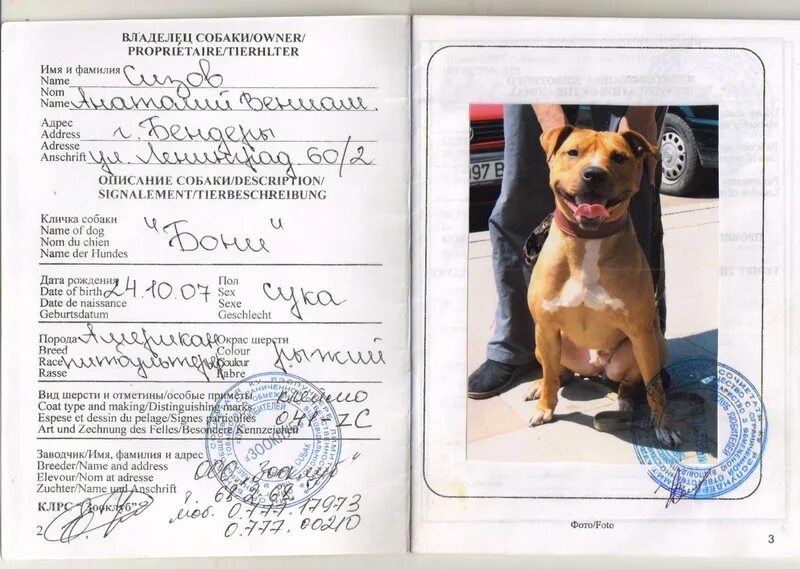 ВЛАДЕЛЕЦ СОБАКИ/OWNER/
PROPRIÉTAIRE/TIERHLTER
Имя и фамилия Сизов
Name
Nom
Name Анатолий Вениам.
Адрес
Address г. Бендеры
Adresse
Anschrift ул. Ленинград 60/2
ОПИСАНИЕ СОБАКИ/DESCRIPTION/
SIGNALEMENT/TIERBESCHREIBUNG
Кличка собаки
Name of dog "Бони"
Nom du chien
Name der Hundes
Дата рождения Пол
Date of birth 24.10.07 Sex сука
Date de naissance Sexe
Geburtsdatum Geschlecht
Порода Американ Окрас шерсти
Breed Colour рыжий
Race питбультерьер Couleur
Rasse Fabre
Вид шерсти и отметины/особые приметы клеймо
Coat type and making/Distinguishing marks
Espese et dessin du pelage/Signes particulies
Art und Zechnung des Felles/Besondere Kennzeichen
Заводчик/Имя, фамилия и адрес
Breeder/Name and address ООО "Зооклуб"
Elevour/Nom at adresse
Zuchter/Name und Anschrift т. 68-2-68
КЛРС "Зооклуб" моб. 0.777.17973
0.777.00210
2
97
Фото/Foto
3